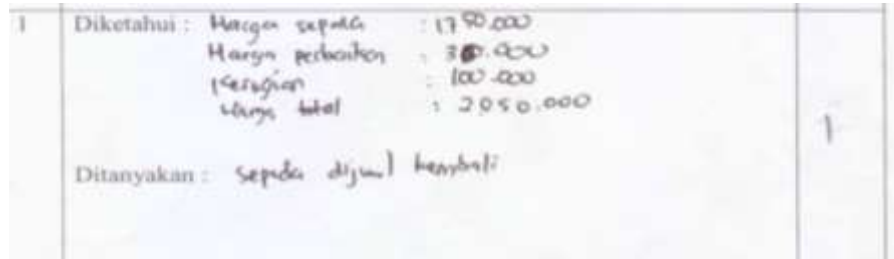 1 Diketahui : Harga sepeda : 1750.000
Harga perbaikan : 300.000
Kerugian : 100.000
Harga total : 2050.000
1
Ditanyakan : sepeda dijual kembali